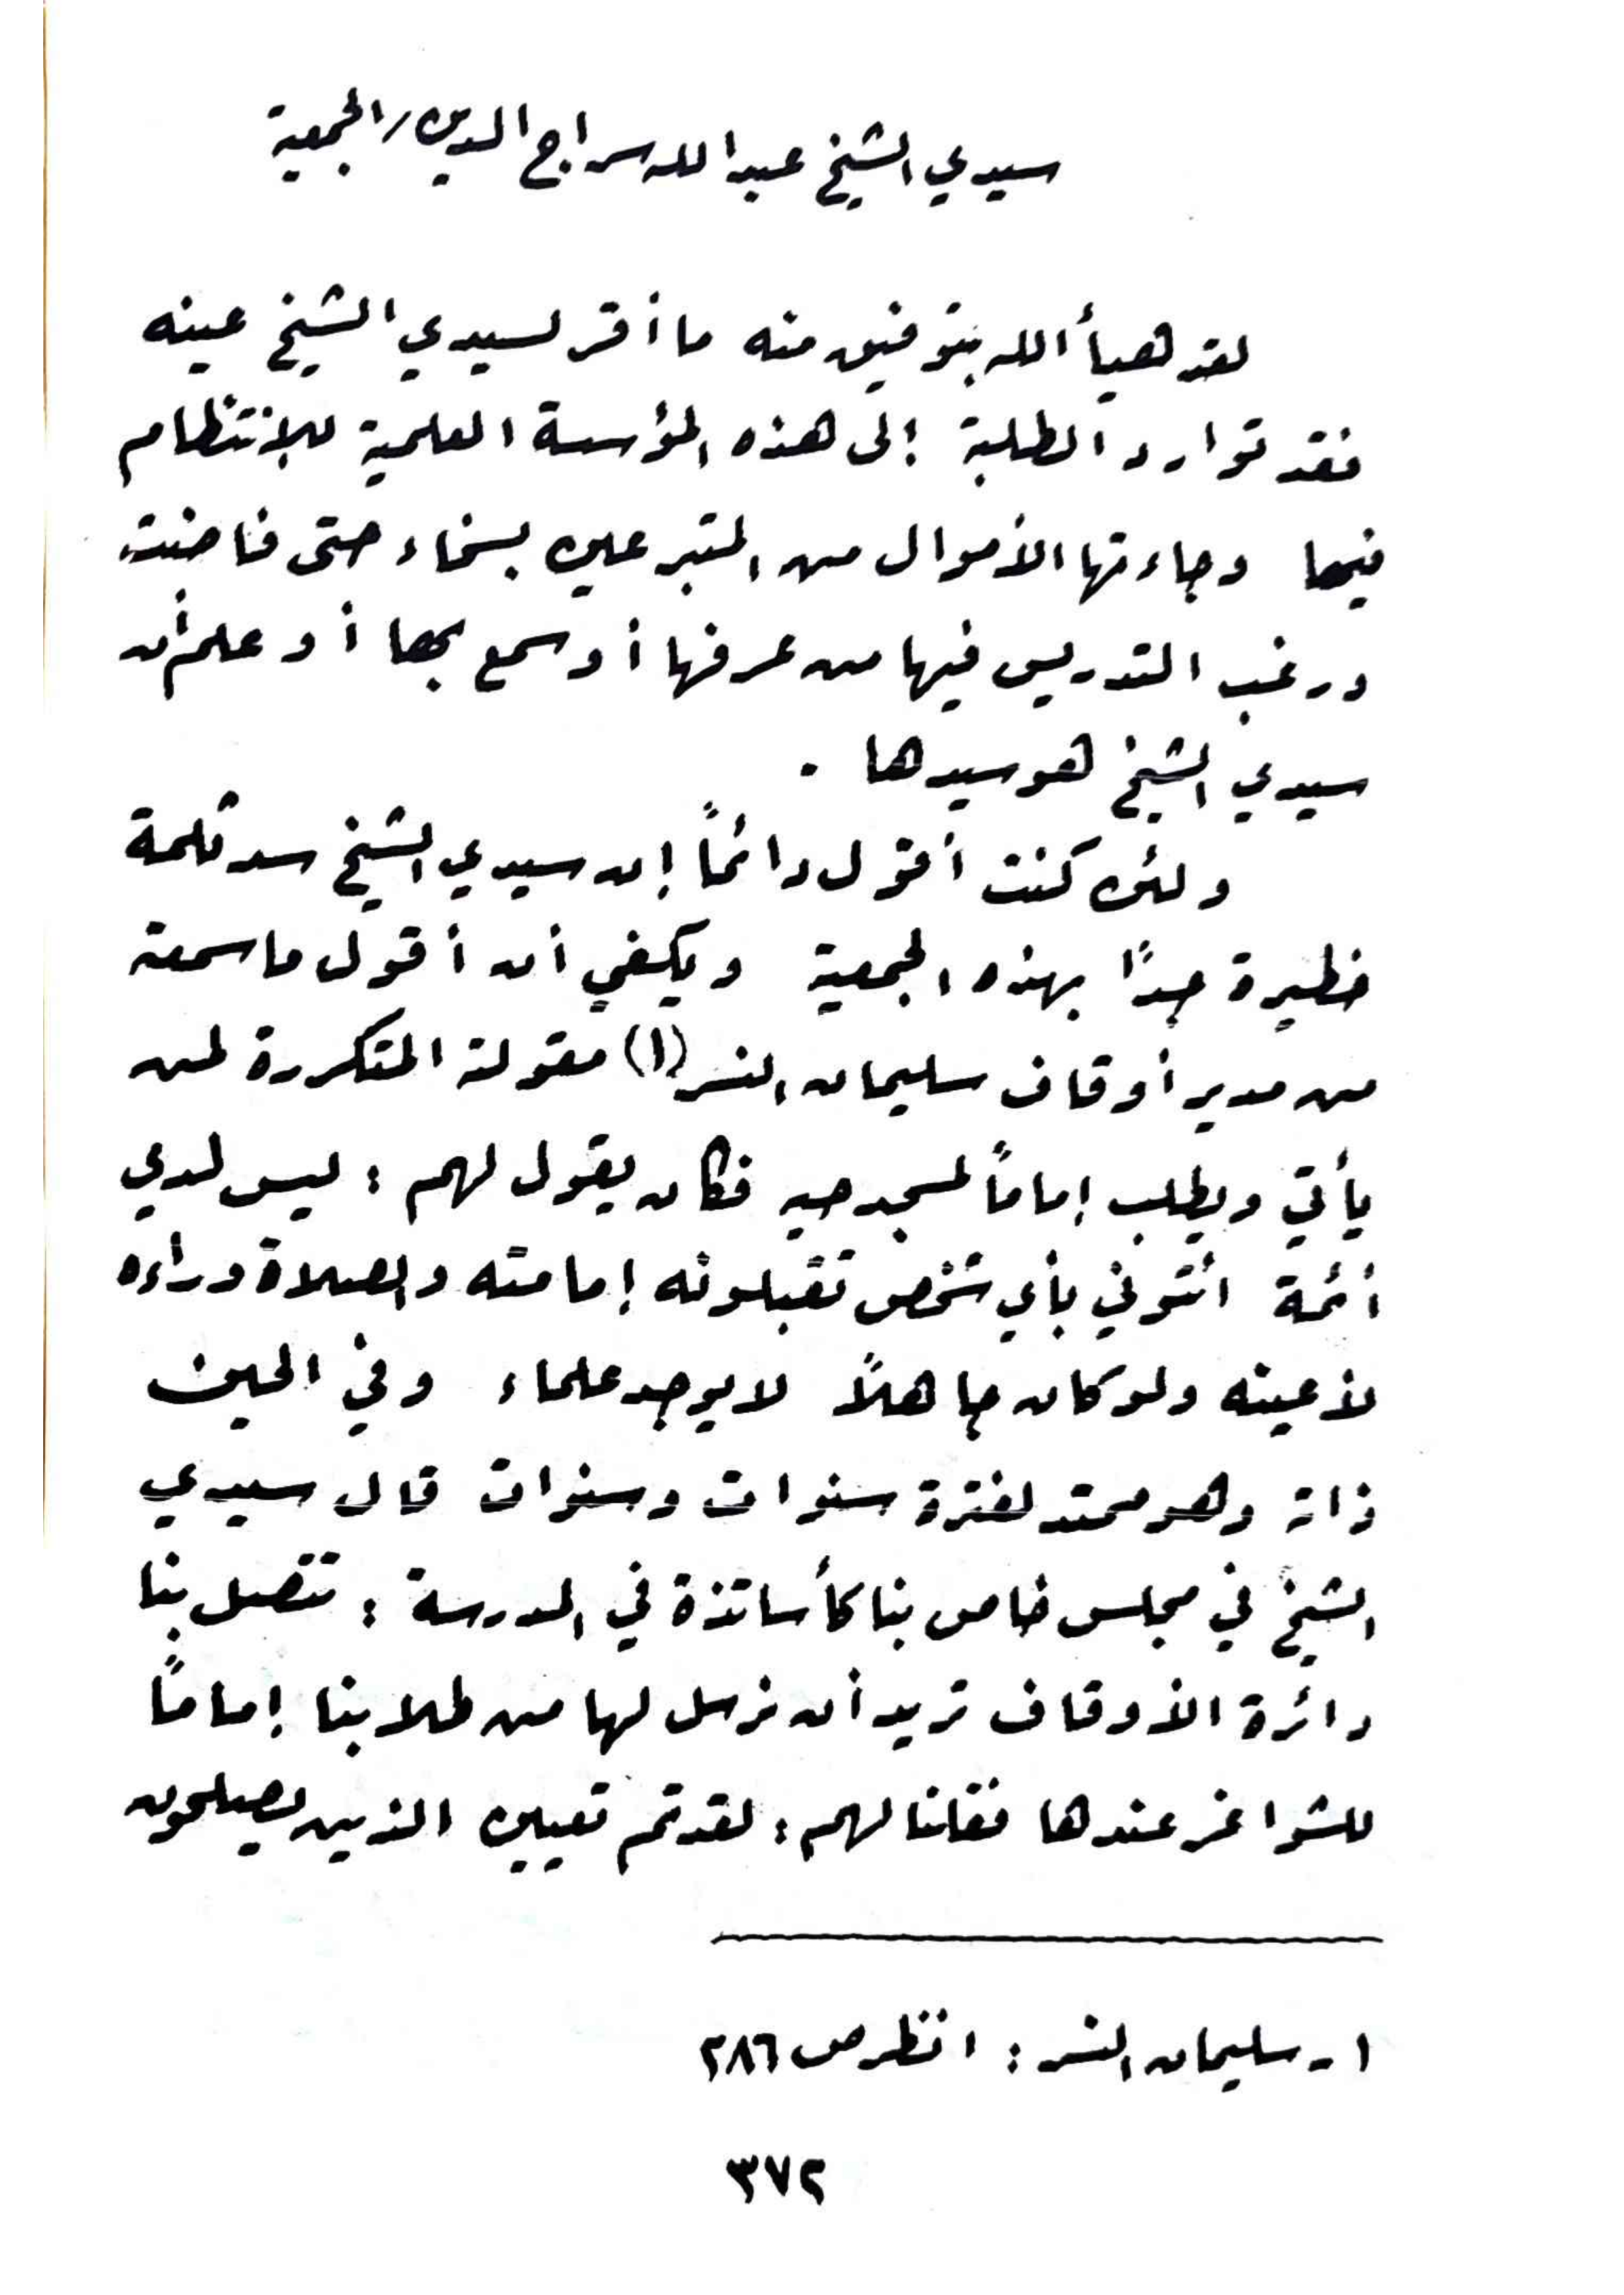 سيدي الشيخ عبد الله سراج الدين / الجمعية
لقد هيأ الله بتوفيق منه ما أقر لسيدي الشيخ عينه
فقد توارد الطلبة إلى هذه المؤسسة العلمية للإنتظام
فيها وجاءتها الأموال من المتبرعين بسخاء حتى فاضت
ورغب التدريس فيها من عرفها أو سمع بها أو علم أن
سيدي الشيخ هو سيدها .
ولئن كنت أقول دائماً إن سيدي الشيخ سد ثلمة
خطيرة جداً بهذه الجمعية ويكفي أن أقول ما سمعته
من مدير أوقاف سليمان النسر (١) مقولته المتكررة لمن
يأتي ويطلب إماماً لمسجد حيه فكان يقول لهم : ليس لدي
أئمة ائتوني بأي شخص تقبلونه إمامته والصلاة وراءه
لأعينه ولو كان جاهلاً لا يوجد علماء وفي الحين
ذاته وهو ممتد لفترة سنوات وسنوات قال سيدي
الشيخ في مجلس خاص بنا كأساتذة في المدرسة : تتصل بنا
دائرة الأوقاف تريد أن نرسل لها من طلابنا إماماً
للشواغر عندها فقلنا لهم : لقد تم تعيين الذين يصلحون
١ - سليمان النسر : انظر ص ٢٨٦
٣٧٢